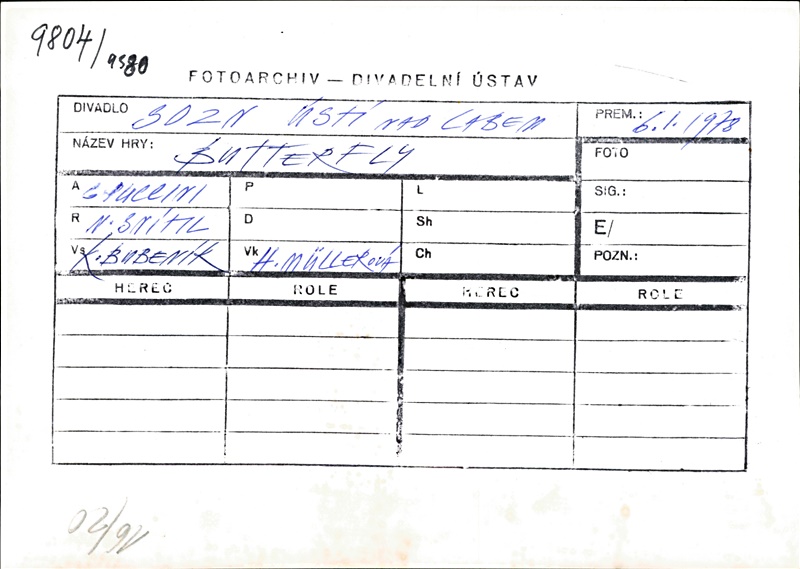 9804/9580
FOTOARCHIV — DIVADELNÍ ÚSTAV
DIVADLO SDZN ÚSTÍ NAD LABEM PREM.: 6.1.1978
NÁZEV HRY: BUTTERFLY FOTO
A G PUCCINI P L SIG.:
R N. SNÍTIL D Sh E/
Vs K. BUBENÍK Vk H. MÜLLEROVÁ Ch POZN.:
HEREC ROLE HEREC ROLE